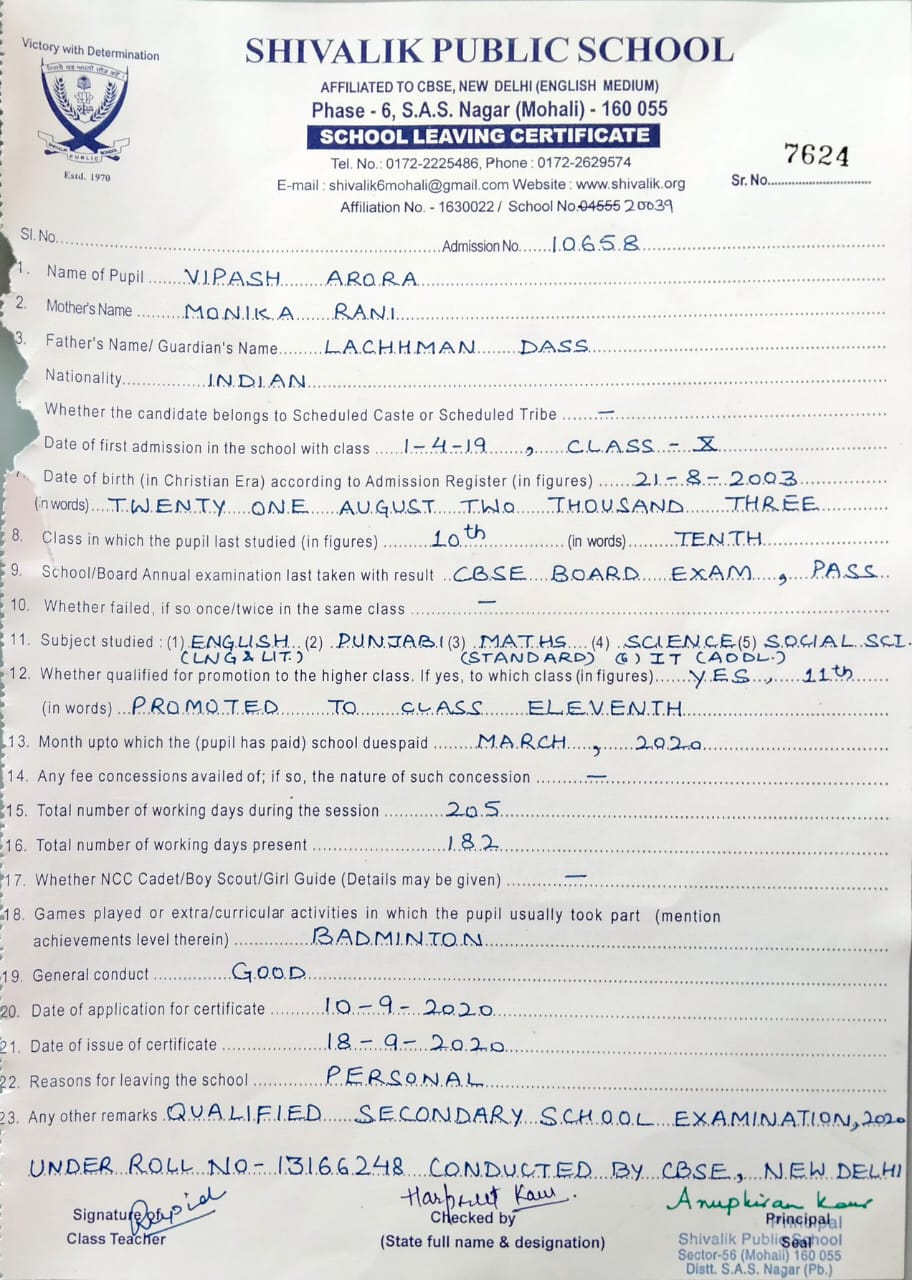 Victory with Determination
SHIVALIK PUBLIC SCHOOL
AFFILIATED TO CBSE, NEW DELHI (ENGLISH MEDIUM)
Phase - 6, S.A.S. Nagar (Mohali) - 160 055
SCHOOL LEAVING CERTIFICATE
Tel. No.: 0172-2225486, Phone : 0172-2629574
E-mail : shivalik6mohali@gmail.com Website : www.shivalik.org
Affiliation No. - 1630022 / School No. 04555 20039
PUBLIC
Estd. 1970
7624
Sr. No.
Sl. No. Admission No. 10658
1. Name of Pupil VIPASH ARORA
2. Mother's Name MONIKA RANI
3. Father's Name/ Guardian's Name LACHHMAN DASS
Nationality INDIAN
Whether the candidate belongs to Scheduled Caste or Scheduled Tribe —
Date of first admission in the school with class 1-4-19 , CLASS - X
Date of birth (in Christian Era) according to Admission Register (in figures) 21-8-2003
(in words) TWENTY ONE AUGUST TWO THOUSAND THREE
8. Class in which the pupil last studied (in figures) 10th (in words) TENTH
9. School/Board Annual examination last taken with result CBSE BOARD EXAM , PASS
10. Whether failed, if so once/twice in the same class —
11. Subject studied : (1) ENGLISH (2) PUNJABI (3) MATHS (4) SCIENCE (5) SOCIAL SCI.
(LNG & LIT.) (STANDARD) (6) IT (ADDL.)
12. Whether qualified for promotion to the higher class. If yes, to which class (in figures) YES , 11th
(in words) PROMOTED TO CLASS ELEVENTH
13. Month upto which the (pupil has paid) school duespaid MARCH , 2020
14. Any fee concessions availed of; if so, the nature of such concession —
15. Total number of working days during the session 205
16. Total number of working days present 182
17. Whether NCC Cadet/Boy Scout/Girl Guide (Details may be given) —
18. Games played or extra/curricular activities in which the pupil usually took part (mention
achievements level therein) BADMINTON
19. General conduct GOOD
20. Date of application for certificate 10-9-2020
21. Date of issue of certificate 18-9-2020
22. Reasons for leaving the school PERSONAL
23. Any other remarks QUALIFIED SECONDARY SCHOOL EXAMINATION, 2020
UNDER ROLL NO- 13166248 CONDUCTED BY CBSE, NEW DELHI
Harpreet Kaur. Anupkiran Kaur
Signature of Checked by Principal Principal
Class Teacher (State full name & designation) Seal
Shivalik Public School
Sector-56 (Mohali) 160 055
Distt. S.A.S. Nagar (Pb.)